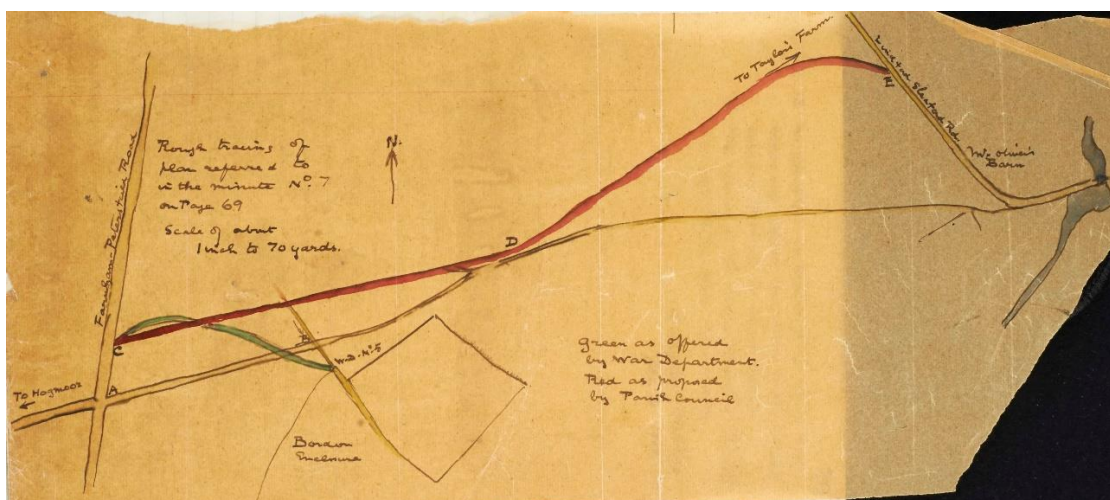 Farnham-Petersfield Road
Rough tracing of
plan referred to
in the minute No. 7
on Page 69
Scale of about
1 inch to 70 yards.
N.
To Taylor's Farm.
Sleaford Rd.
Mr Oliver's
Barn
D
C
B
A
W.D. No. 5
To Hogmoor
Bordon
Enclosure
Green as offered
by War Department.
Red as proposed
by Parish Council